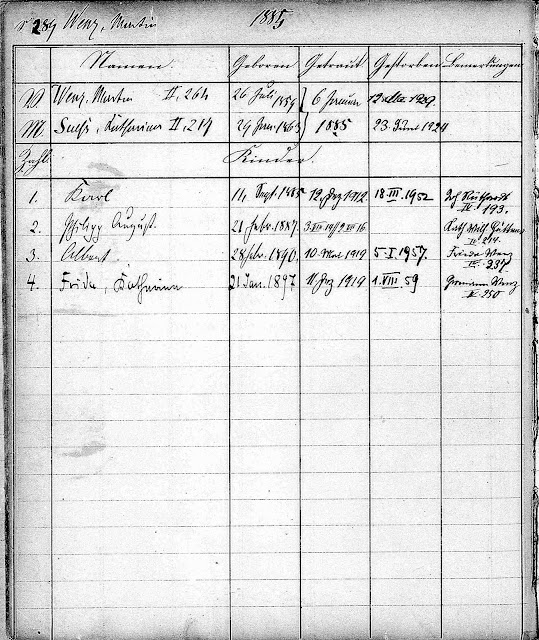 284 Wenz, Martin 1885
Namen. Geboren Getraut Gestorben Bemerkungen
V. Wenz, Martin II, 264 26 Juli 1859 6 Januar 1929.
M. Sachs, Katharina II, 214 29 Jan. 1863 1885 23. Juni 1924
Zahl. Kinder.
1. Karl 11. Sept. 1885 12. Dez 1912 18 III. 1952
IV. 193.
2. Philipp August. 21 Febr. 1887. Kath Wolf
II 214.
3. Albert 28 Febr. 1890. 10. Mai 1919 5. I. 1957. Frieda Wenz
IV. 237
4. Frieda, Katharina 21 Jan. 1897 11 Dez 1919 1. VIII 59 Hermann Wenz
II 250